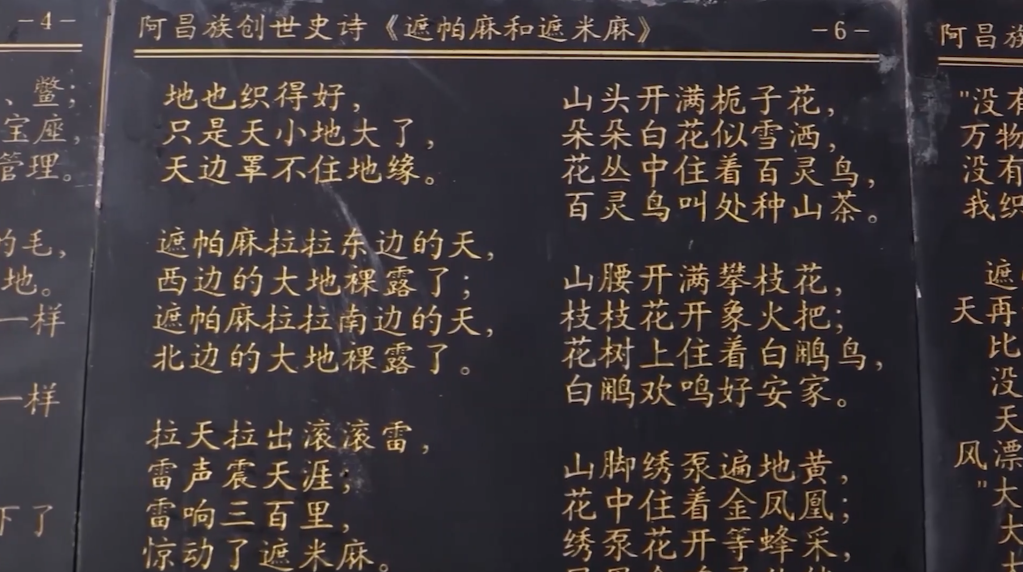 -4-
、鳖；
宝座，
管理。
的毛，
地。
一样
一样
下了
阿昌族创世史诗《遮帕麻和遮米麻》
-6-
地也织得好，
只是天小地大了，
天边罩不住地缘。
遮帕麻拉拉东边的天，
西边的大地裸露了；
遮帕麻拉拉南边的天，
北边的大地裸露了。
拉天拉出滚滚雷，
雷声震天涯；
雷响三百里，
惊动了遮米麻。
山头开满栀子花，
朵朵白花似雪洒，
花丛中住着百灵鸟，
百灵鸟叫处种山茶。
山腰开满攀枝花，
枝枝花开象火把；
花树上住着白鹇鸟，
白鹇欢鸣好安家。
山脚绣泵遍地黄，
花中住着金凤凰；
绣泵花开等蜂采，
阿昌族
"没有
万物
没有
我织
遮
天再
比
没
天
风漂
"大
大